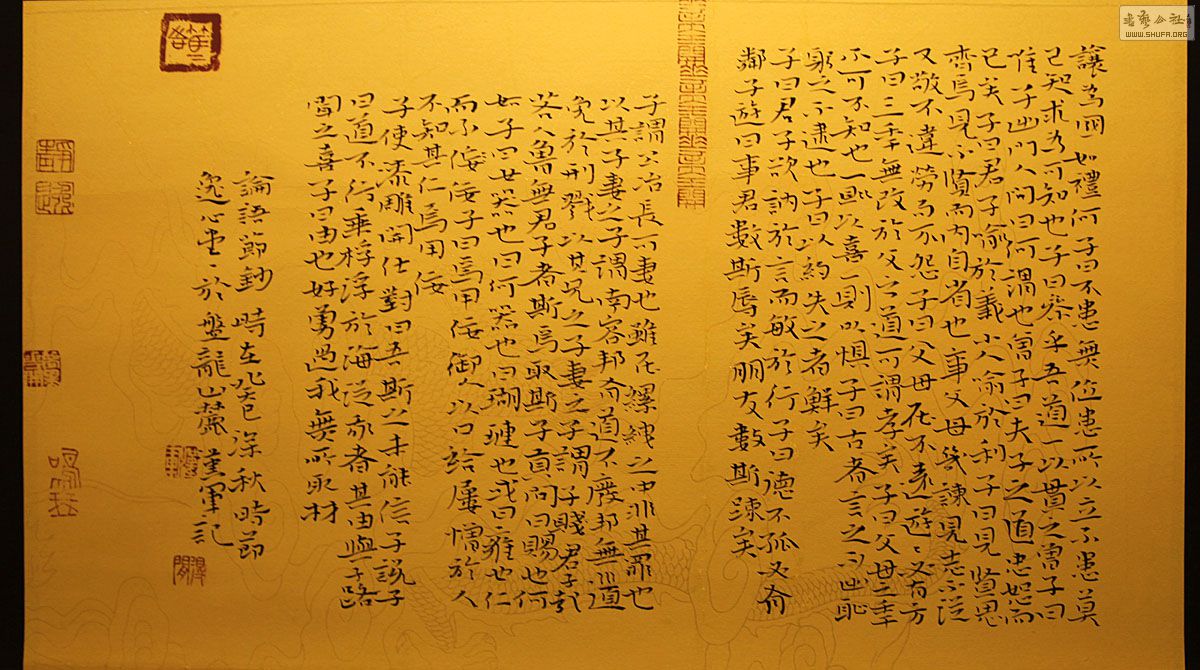 讓為國如禮何子曰不患無位患所以立不患莫
己知求為可知也子曰參乎吾道一以貫之曾子曰
唯子出門人問曰何謂也曾子曰夫子之道忠恕而
已矣子曰君子喻於義小人喻於利子曰見賢思
齊焉見不賢而內自省也事父母幾諫見志不從
又敬不違勞而不怨子曰父母在不遠遊〻必有方
子曰三年無改於父之道可謂孝矣子曰父母之年
不可不知也一則以喜一則以懼子曰古者言之不出恥
躬之不逮也子曰以約失之者鮮矣
子曰君子欲訥於言而敏於行子曰德不孤必有
鄰子游曰事君數斯辱矣朋友數斯疎矣
子謂公冶長可妻也雖在縲絏之中非其罪也
以其子妻之子謂南容邦有道不廢邦無道
免於刑戮以其兄之子妻之子謂子賤君子哉
若人魯無君子者斯焉取斯子貢問曰賜也何
如子曰女器也曰何器也曰瑚璉也或曰雍也仁
而不佞佞子曰焉用佞御人以口給屢憎於人
不知其仁焉用佞
子使漆雕開仕對曰吾斯之未能信子說子
曰道不行乘桴浮於海從我者其由與子路
聞之喜子曰由也好勇過我無所取材
論語節鈔 時在癸巳深秋時節
逸心堂主於盤龍山麓 董軍記
書藝公社
WWW.SHUFA.ORG